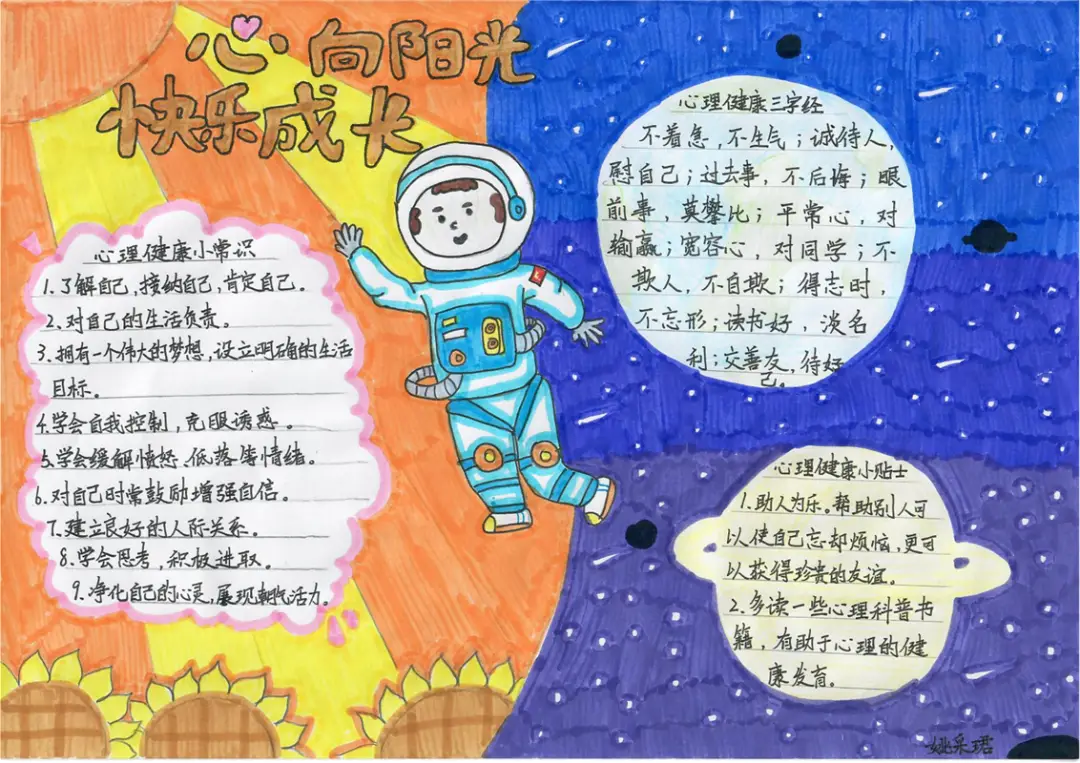 心向阳光
快乐成长
心理健康小常识
1.了解自己,接纳自己,肯定自己.
2.对自己的生活负责。
3.拥有一个伟大的梦想,设立明确的生活
目标.
4.学会自我控制,克服诱惑.
5.学会缓解愤怒、低落等情绪。
6.对自己时常鼓励增强自信。
7.建立良好的人际关系.
8.学会思考,积极进取.
9.净化自己的心灵,展现朝气活力.
心理健康三字经
不着急,不生气;诚待人,
慰自己;过去事,不后悔;眼
前事,莫攀比;平常心,对
输赢;宽容心,对同学;不
欺人,不自欺;得志时,
不忘形;读书好,淡名
利;交善友,待好
己。
心理健康小贴士
1.助人为乐。帮助别人可
以使自己忘却烦恼,更可
以获得珍贵的友谊。
2.多读一些心理科普书
籍,有助于心理的健
康发育。
姚采珺